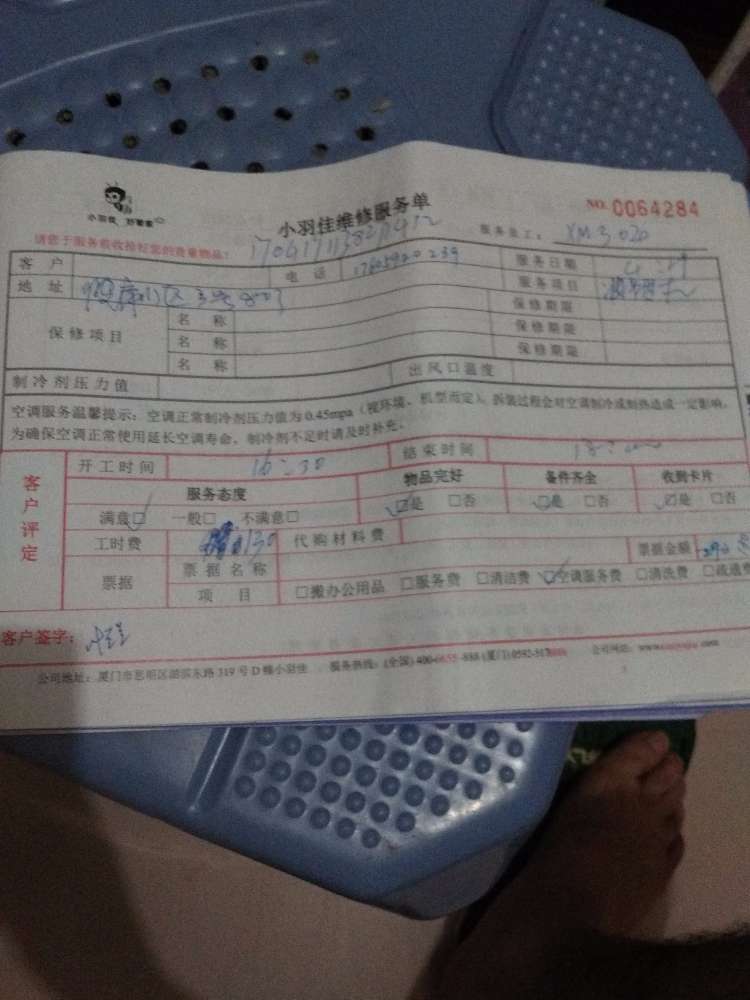 小羽佳维修服务单
NO. 0064284
小羽佳 好管家
请您于服务前收捡好您的贵重物品!
服务员工: XM3020
客户 电话 17605920239 服务日期
地址 服务项目
保修项目 名称 保修期限
名称 保修期限
名称 保修期限
制冷剂压力值 出风口温度
空调服务温馨提示: 空调正常制冷剂压力值为 0.45mpa (视环境、机型而定), 拆装过程会对空调制冷或制热造成一定影响,
为确保空调正常使用延长空调寿命, 制冷剂不足时请及时补充。
客户评定
开工时间 16:30 结束时间
服务态度 物品完好 备件齐全 收到卡片
满意□ 一般□ 不满意□ □是 □否 □是 □否 □是 □否
工时费 130 代购材料费
票据 票据名称 票据金额
项目 □搬办公用品 □服务费 □清洁费 □空调服务费 □清洗费 □疏通费
客户签字:
公司地址: 厦门市思明区湖滨东路 319 号 D 幢小羽佳 服务热线: (全国) 400-6655-888 (厦门) 0592-517 公司网站: www. .com